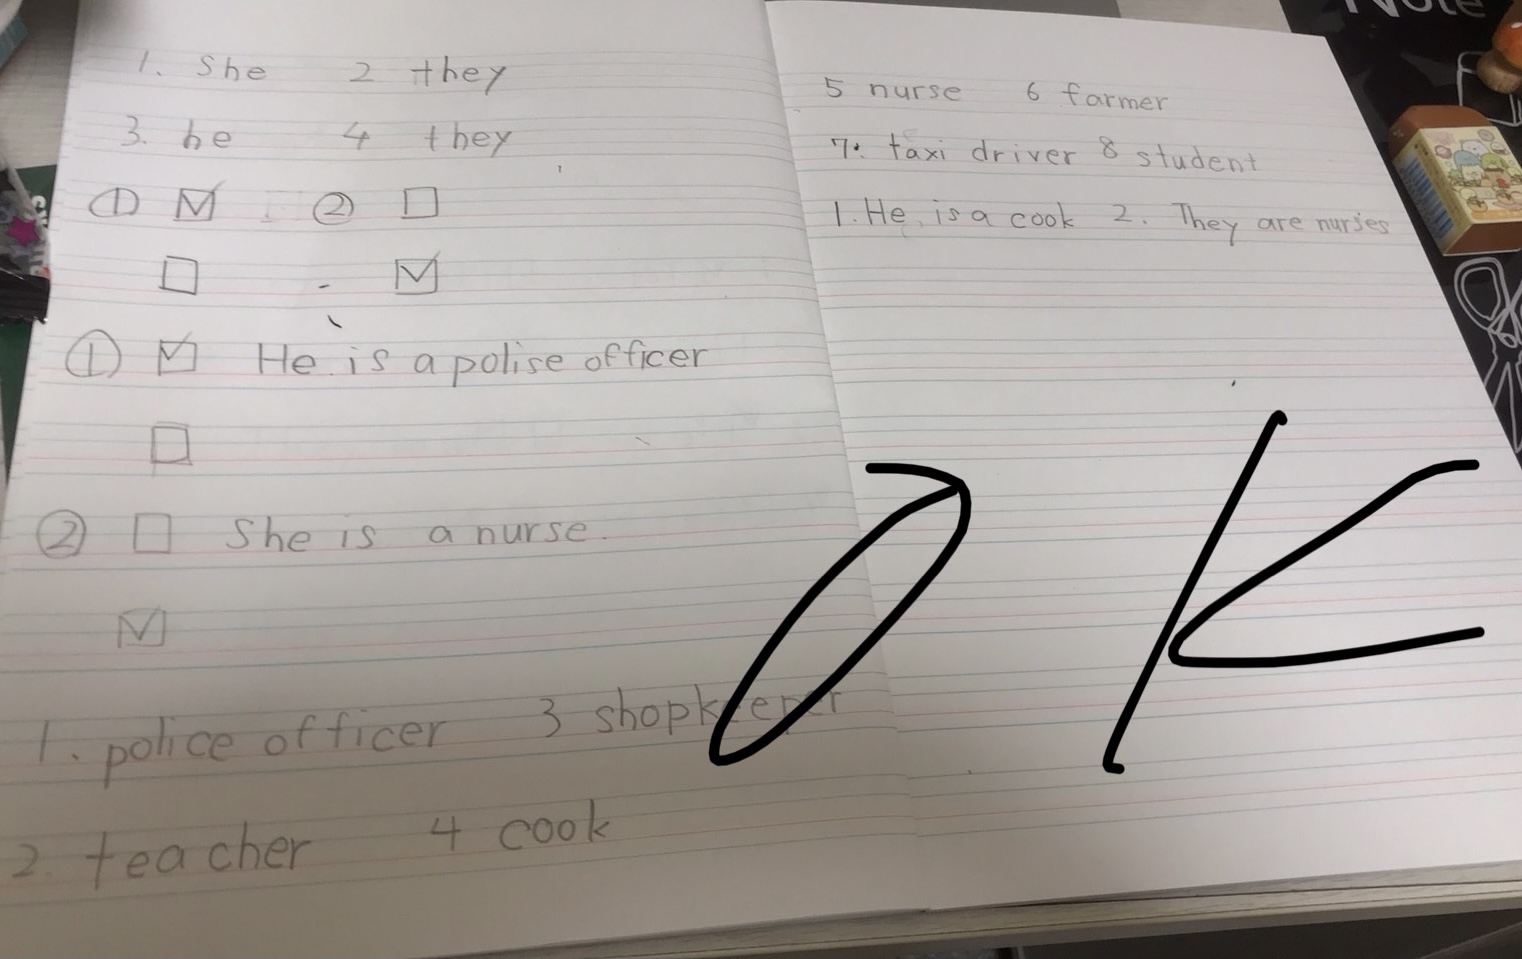 1. She 2 they
3. he 4 they
① ②
① He is a polise officer
② She is a nurse.
1. police officer 3 shopkeeper
2. teacher 4 cook
5 nurse 6 farmer
7. taxi driver 8 student
1. He is a cook 2. They are nurses
OK
Note